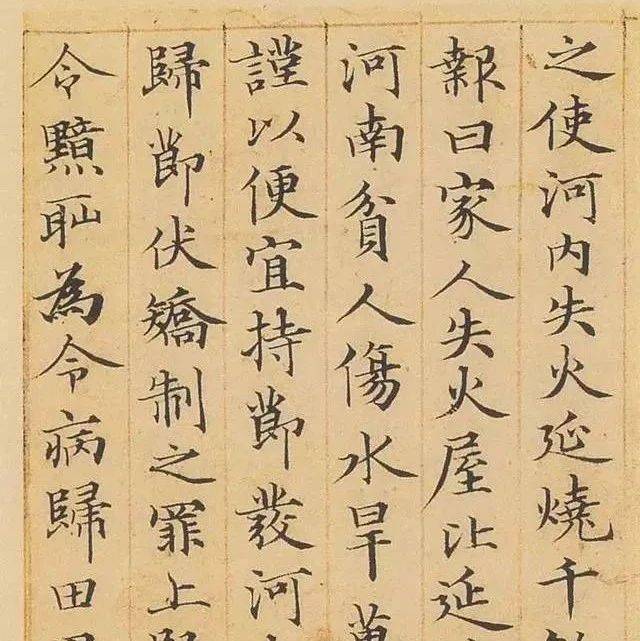 之使河内失火延燒千
報曰家人失火屋比延
河南貧人傷水旱萬
謹以便宜持節發河
歸節伏矯制之罪上賢
令黯耻為令病歸田